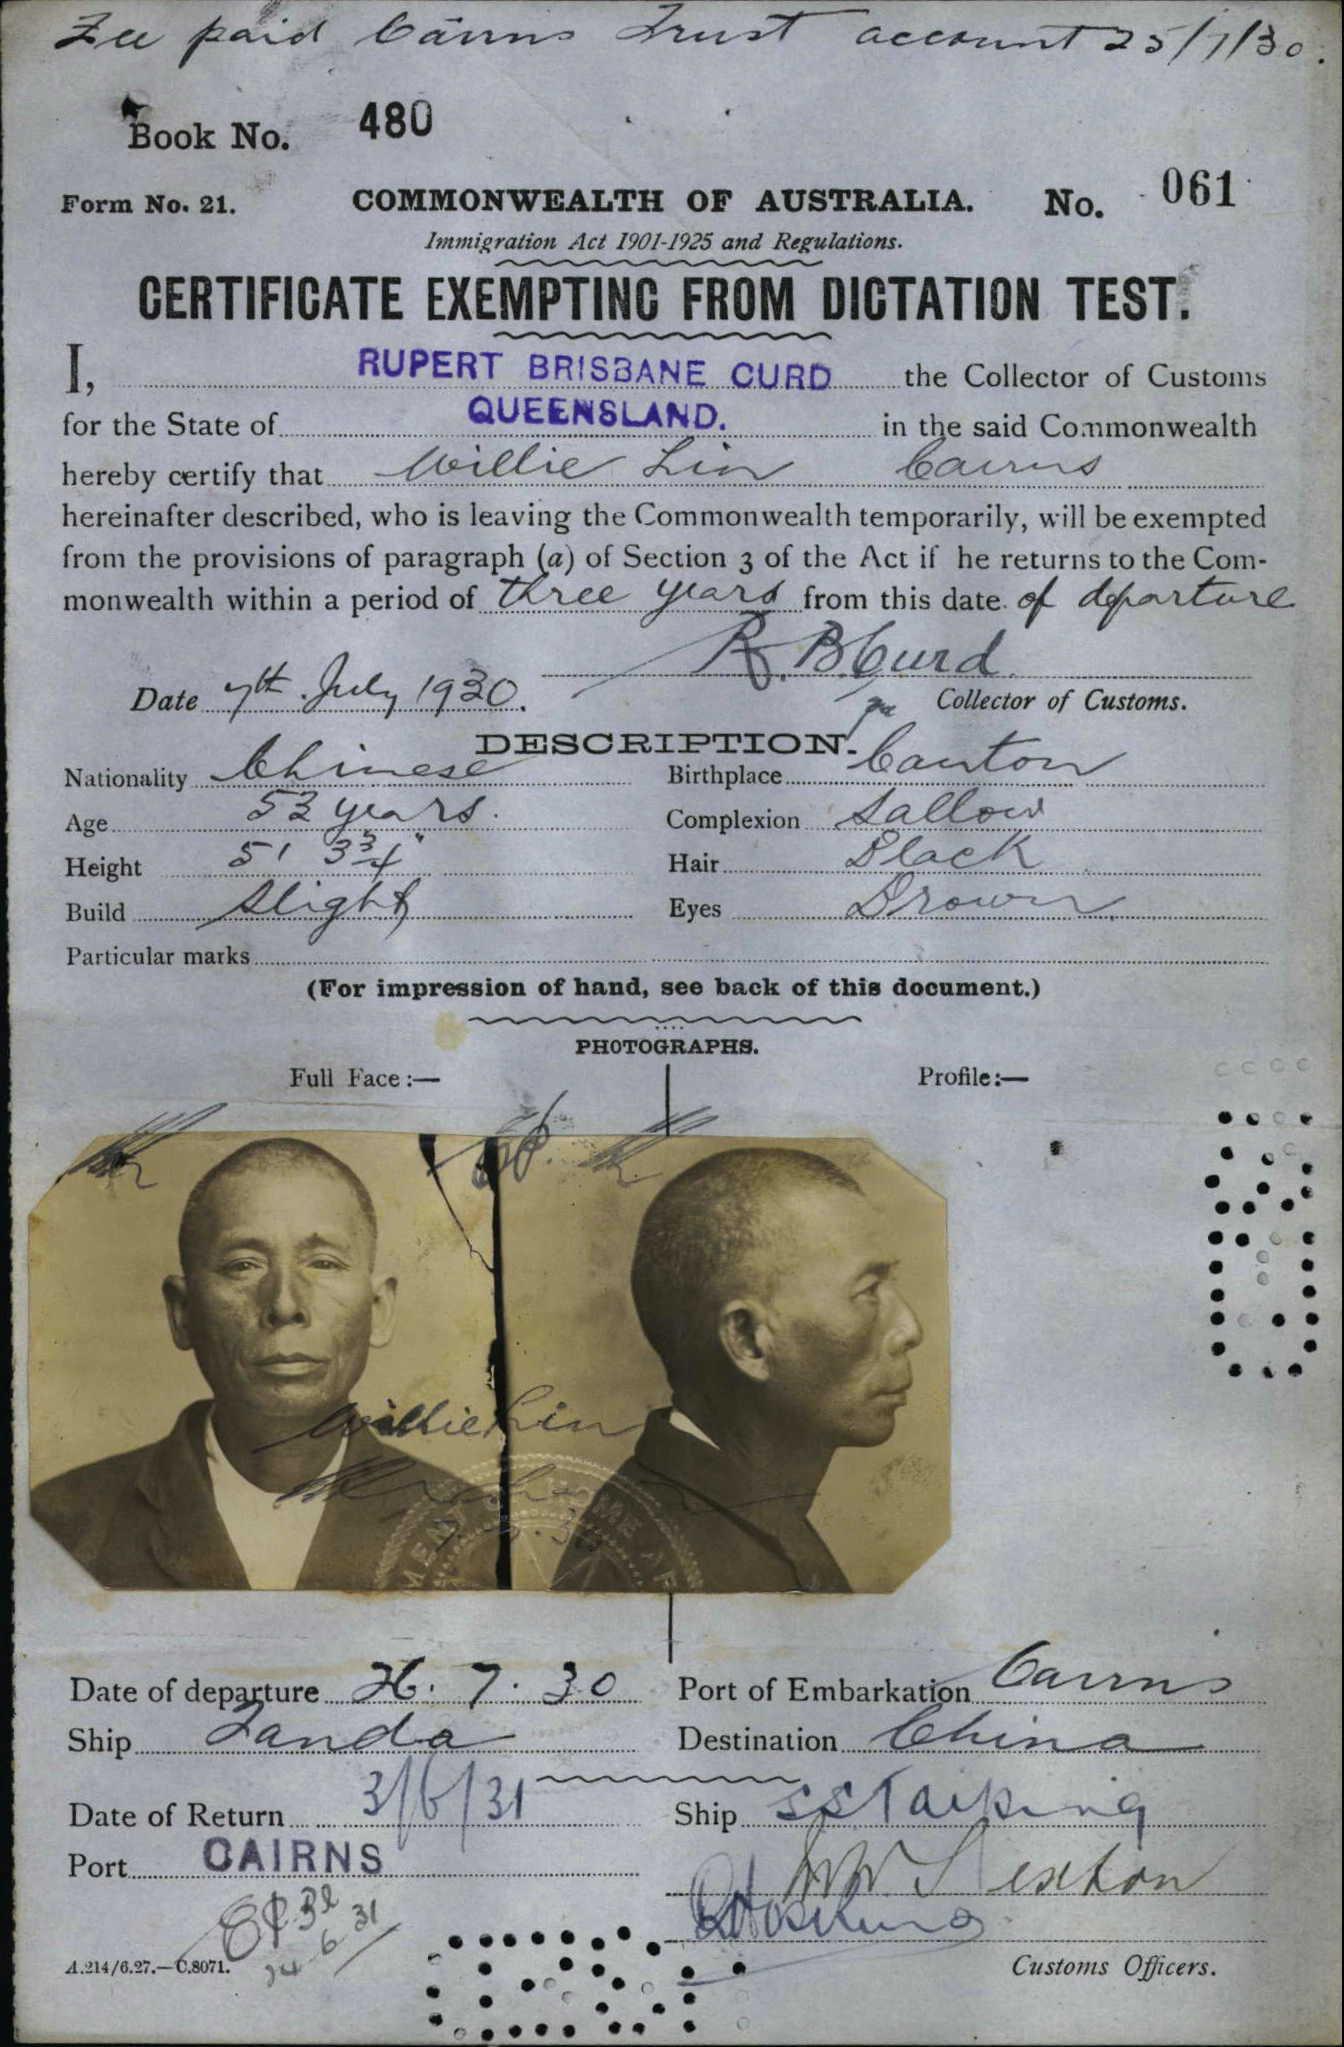 Fee paid Cairns Trust account 25/7/30.
Book No. 480
Form No. 21. COMMONWEALTH OF AUSTRALIA. No. 061
Immigration Act 1901-1925 and Regulations.
CERTIFICATE EXEMPTING FROM DICTATION TEST.
I, RUPERT BRISBANE CURD the Collector of Customs
for the State of QUEENSLAND. in the said Commonwealth
hereby certify that Willie Lin Cairns
hereinafter described, who is leaving the Commonwealth temporarily, will be exempted
from the provisions of paragraph (a) of Section 3 of the Act if he returns to the Com-
monwealth within a period of three years from this date of departure
R. B. Curd
Date 7th July 1930. Collector of Customs.
DESCRIPTION.
Nationality Chinese Birthplace Canton
Age 53 years. Complexion Sallow
Height 5' 3 3/4" Hair Black
Build Slight Eyes Brown
Particular marks
(For impression of hand, see back of this document.)
PHOTOGRAPHS.
Full Face :— Profile:—
Willie Lin
7.7.30
Date of departure 26.7.30 Port of Embarkation Cairns
Ship Tanda Destination China
Date of Return 3/6/31 Ship SS Taiping
Port CAIRNS
24.6.31
A.214/6.27.—C.8071. Customs Officers.